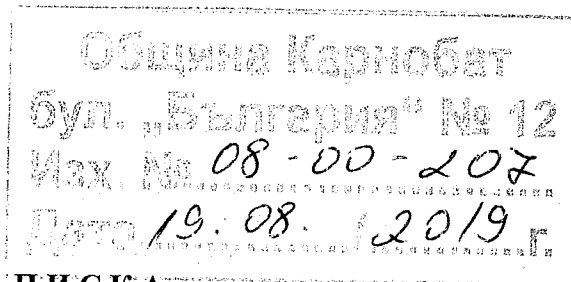 Община Карнобат
бул. „България“ № 12
Изх. № 08-00-207
Дата 19.08. / 2019 г.